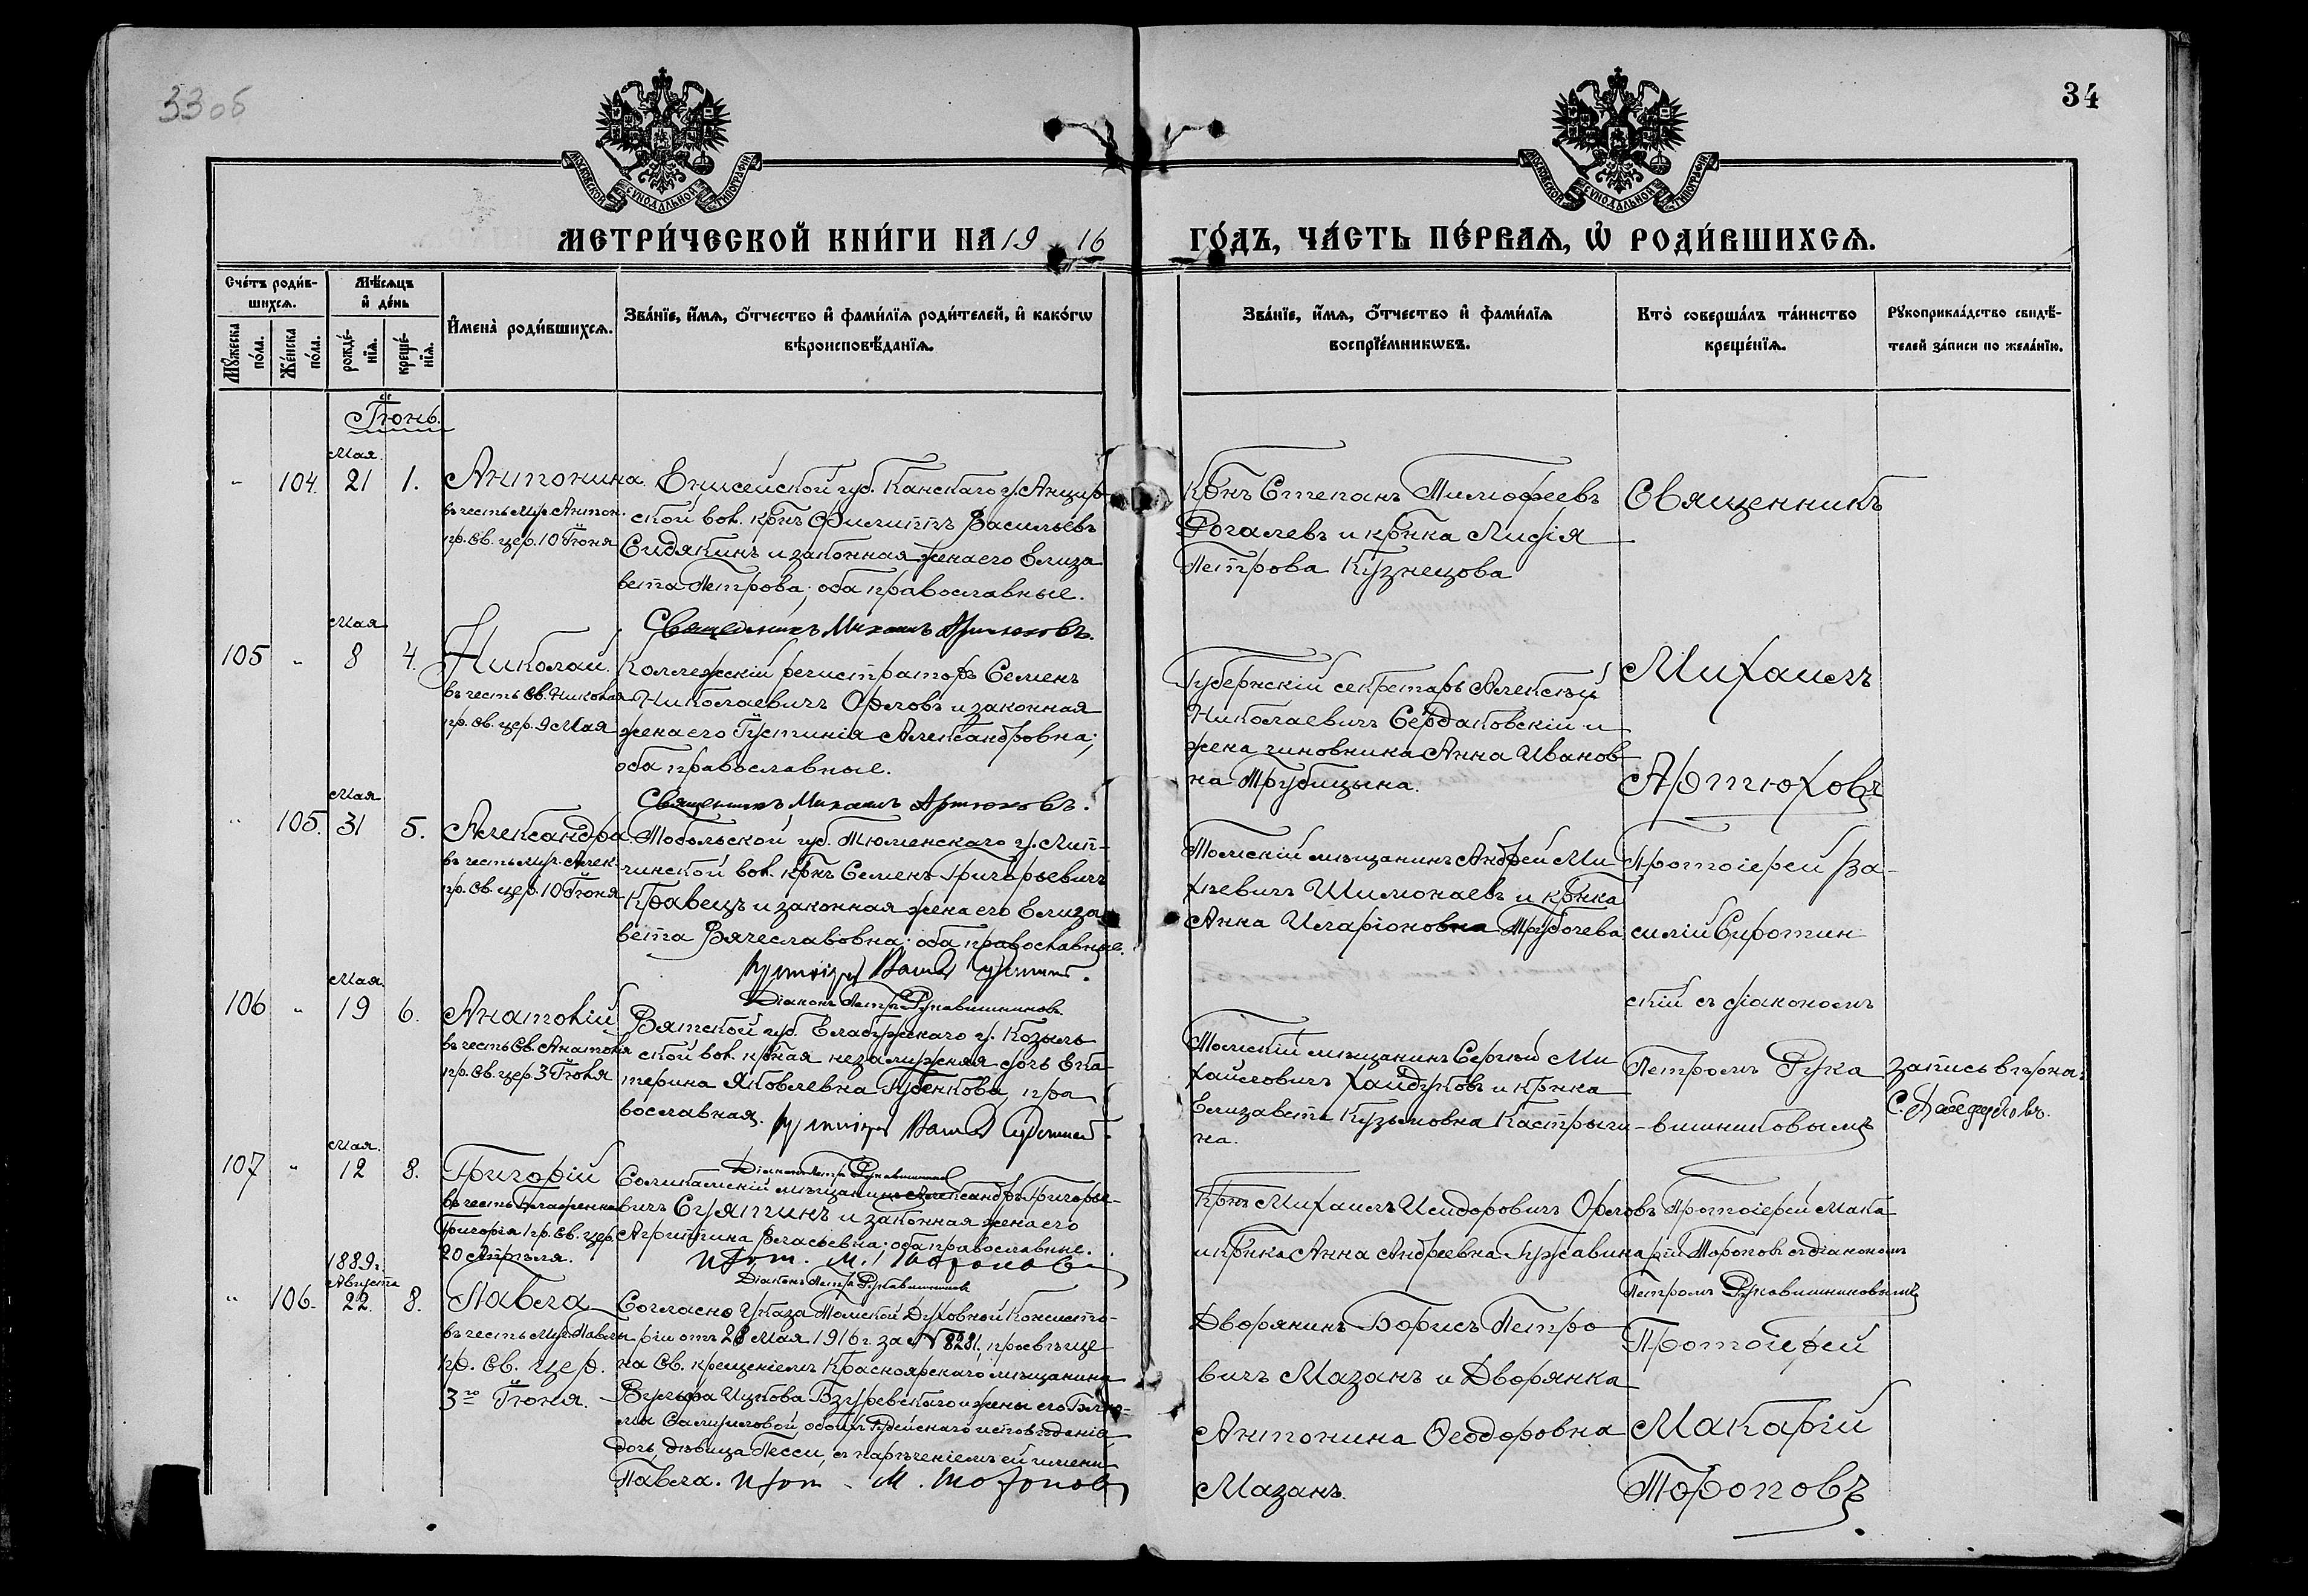 33 об
34
МОСКОВСКОЙ СѴНОДАЛЬНОЙ ТИПОГРАФІИ
МОСКОВСКОЙ СѴНОДАЛЬНОЙ ТИПОГРАФІИ
МЕТРИ́ЧЕСКОЙ КНИ́ГИ НА 1916
ГО́ДЪ, ЧА́СТЬ ПЕ́РВАѦ, Ѡ҆ РОДИ́ВШИХСѦ.
Сче́тъ роди́в-
шихсѧ.
Мꙋ́жеска по́ла.
Же́нска по́ла.
Мѣ́сѧцъ
и҆ де́нь
рожде́-
нїѧ.
креще́-
нїѧ.
И҆мена̀ роди́вшихсѧ.
Зва́нїе, и҆́мѧ, ѻ҆́тчество и҆ фами́лїѧ роди́телей, и҆ како́гѡ
вѣроисповѣ́данїѧ.
Зва́нїе, и҆́мѧ, ѻ҆́тчество и҆ фами́лїѧ
воспрїе́мникѡвъ.
Кто̀ соверша́лъ та́инство
креще́нїѧ.
Рꙋкоприкла́дство свидѣ́-
телей за́писи по жела́нїю.
Іюнь.
Мая
" 104. 21 1. Антонина
въ честь Муч. Антон.
пр. Св. цер. 10 Іюня
Енисейской губ. Канскаго у. Анцир-
ской вол. крнъ Филиппъ Васильевъ
Сидякинъ и законная жена его Елиза
вета Петрова; оба православные.
Священникъ Михаилъ Артюховъ.
Крнъ Степанъ Тимофеевъ
Рогалевъ и крнка Лидія
Петрова Кузнецова
Священникъ
Мая
105 " 8 4. Николай.
въ честь Св. Николая
пр. Св. цер. 9 Мая
Коллежскій регистраторъ Семенъ
Николаевичъ Орловъ и законная
жена его Іустинія Александровна;
оба православные.
Священникъ Михаилъ Артюховъ.
Губернскій секретарь Алексѣй
Николаевичъ Сердаковскій и
жена чиновника Анна Иванов
на Трубицына.
Михаилъ
Артюховъ
Мая
" 105. 31 5. Александра
въ честь Муч. Алек.
пр. Св. цер. 10 Іюня
Тобольской губ. Тюменскаго у. Лип-
чинской вол. крнъ Семенъ Григорьевичъ
Кравецъ и законная жена его Елиза
вета Вячеславовна; оба православные.
Діаконъ Петръ Рукавишниковъ.
Томскій мѣщанинъ Андрей Ми
хѣевичъ Шимонаевъ и крнка
Анна Иларіоновна Трубачева
Протоіерей Ва-
силій Сиротин
скій съ діакономъ
Петромъ Рука
вишниковымъ
Мая
106 " 19 6. Анатолій
въ честь Св. Анатолія
пр. Св. цер. 3 Іюля
Вятской губ. Елабужскаго у. Козыль
ской вол. крная незамужняя дочь Ека-
терина Яковлевна Губенкова, пра
вославная.
Діаконъ Петръ Рукавишниковъ
Томскій мѣщанинъ Сергѣй Ми
хайловичъ Хайдуковъ и крнка
Елизавета Кузьмовна Кастрыги-
на.
запись вѣрна:
Мая.
107 " 12 8. Григорій
Григорія пр. Св. цер.
20 Апрѣля.
Соликамскій мѣщанинъ Александръ Григорье-
вичъ Сұятинъ и законная жена его
Агрипина Власьевна; оба православные.
Прот. М. Тороповъ
Діаконъ Петръ Рукавишниковъ
Крнъ Михаилъ Исидоровичъ Орловъ
и крнка Анна Андреевна Гужавина
Протоіерей Мака
рій Тороповъ съ діакономъ
Петромъ Рукавишниковымъ
1889 г.
Августа
" 106. 22. 8. Павла
въ честь Муч. Павлы
пр. Св. цер.
3го Іюня.
Согласно Указа Томской Духовной Консисто-
ріи отъ 28 Мая 1916 г. за № 8281, просвѣще
на Св. крещеніемъ Красноярскаго мѣщанина
Вульфа Ицкова Бзуревскаго и жены его
Самуиловой, обоихъ Іудейскаго исповѣданія
дочь, дѣвица Песси, съ нареченіемъ ей имени
Павла. Прот. М. Тороповъ
Дворянинъ Борисъ Петро
вичъ Мазанъ и Дворянка
Антонина Ѳеодоровна
Мазанъ.
Протоіерей
Макарій
Тороповъ